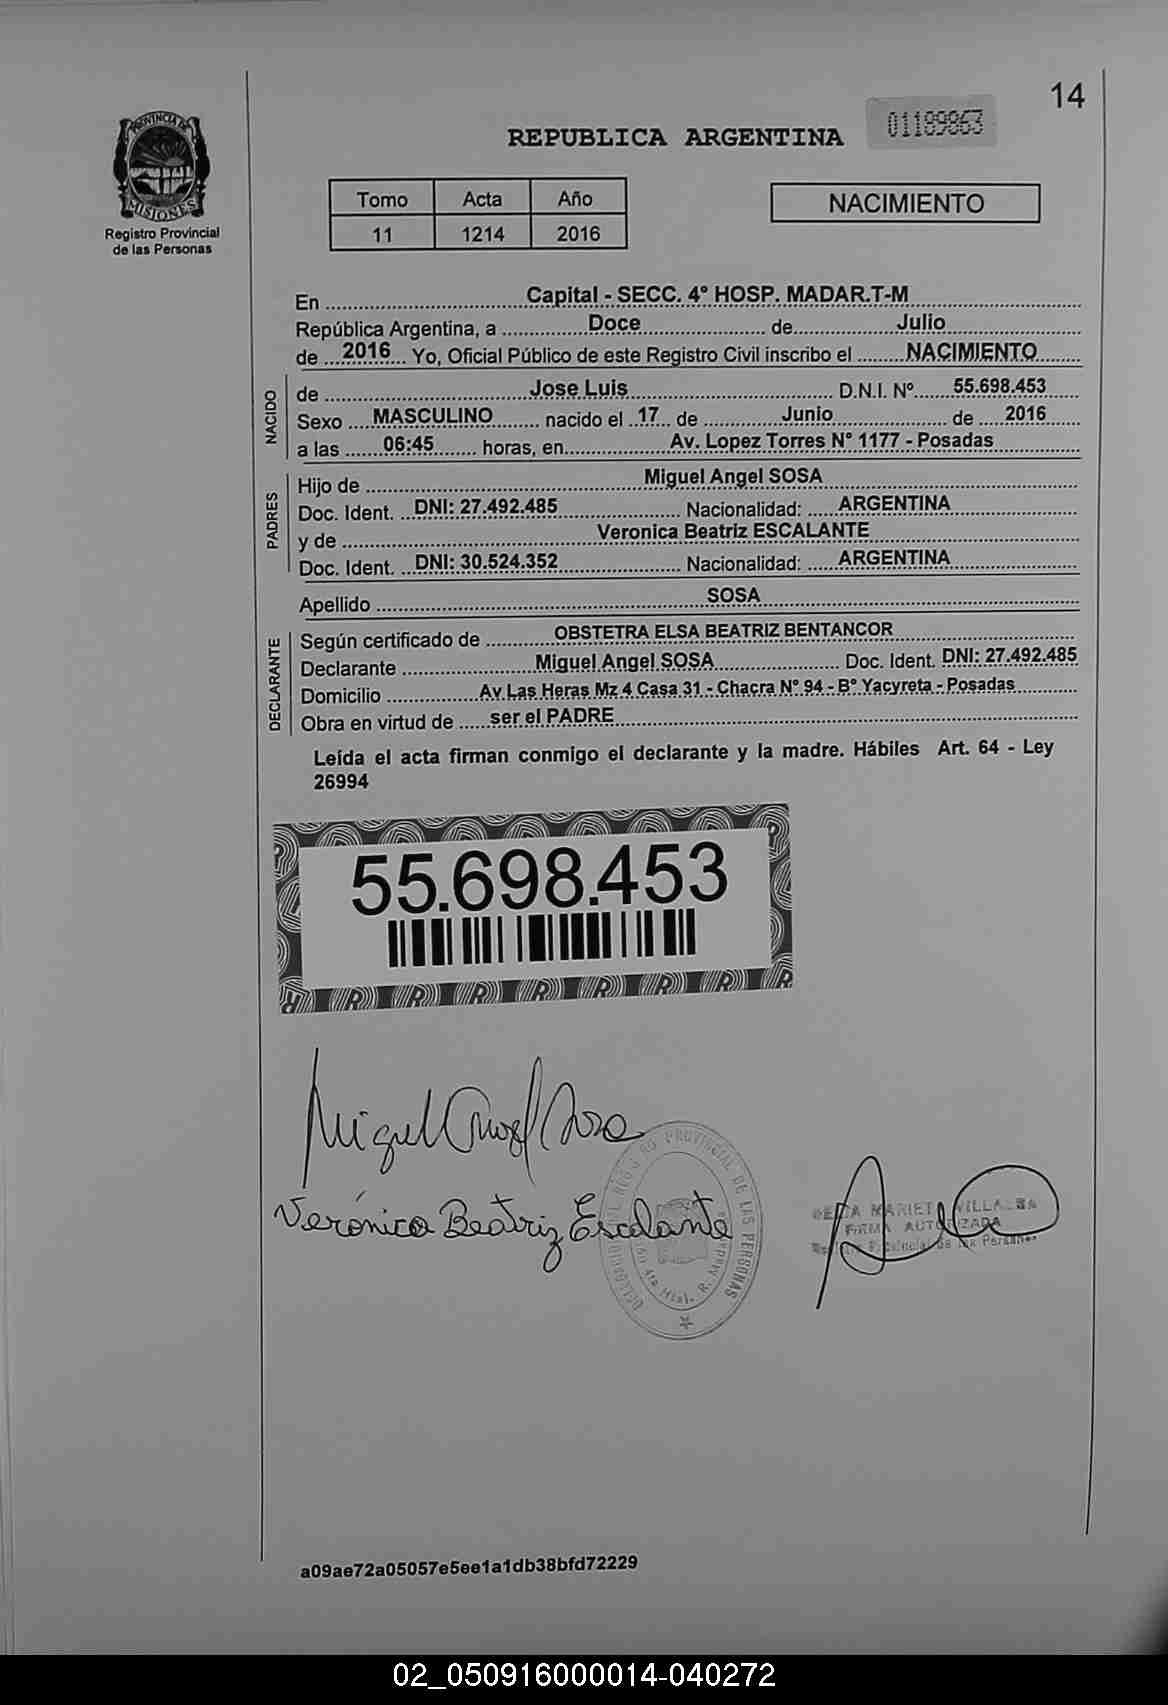 14
01189863
REPUBLICA ARGENTINA
PROVINCIA DE
MISIONES
Registro Provincial
de las Personas
Tomo Acta Año
11 1214 2016
NACIMIENTO
En Capital - SECC. 4° HOSP. MADAR.T-M
República Argentina, a Doce de Julio
de 2016 Yo, Oficial Público de este Registro Civil inscribo el NACIMIENTO
NACIDO
de Jose Luis D.N.I. Nº 55.698.453
Sexo MASCULINO nacido el 17 de Junio de 2016
a las 06:45 horas, en Av. Lopez Torres N° 1177 - Posadas
PADRES
Hijo de Miguel Angel SOSA
Doc. Ident. DNI: 27.492.485 Nacionalidad: ARGENTINA
y de Veronica Beatriz ESCALANTE
Doc. Ident. DNI: 30.524.352 Nacionalidad: ARGENTINA
Apellido SOSA
DECLARANTE
Según certificado de OBSTETRA ELSA BEATRIZ BENTANCOR
Declarante Miguel Angel SOSA Doc. Ident. DNI: 27.492.485
Domicilio Av Las Heras Mz 4 Casa 31 - Chacra N° 94 - B° Yacyreta - Posadas
Obra en virtud de ser el PADRE
Leída el acta firman conmigo el declarante y la madre. Hábiles Art. 64 - Ley
26994
55.698.453
Miguel Angel Sosa
Verónica Beatriz Escalante
PROVINCIAL DE LAS PERSONAS
FIRMA AUTORIZADA
a09ae72a05057e5ee1a1db38bfd72229
02_050916000014-040272